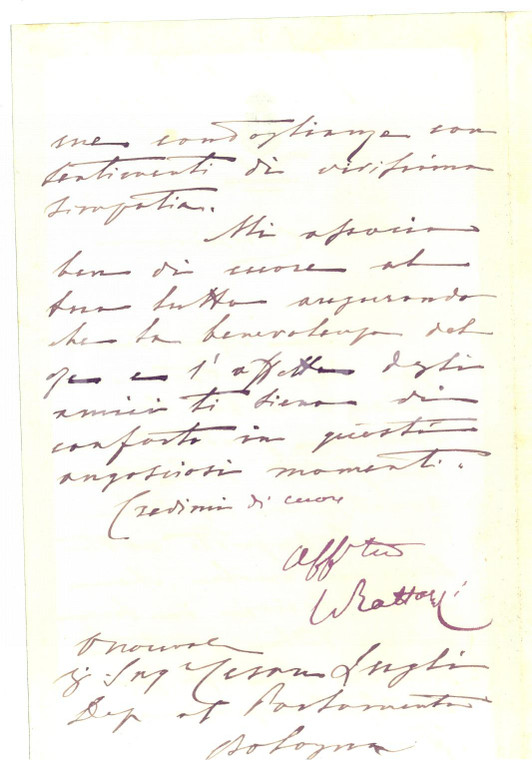 me condoglianze con
sentimenti di vivissima
simpatia.
Mi associo
ben di cuore al
tuo lutto augurando
che la benevolenza del
Re e l'affetto degli
amici ti siano di
conforto in questi
angosciosi momenti.
Credimi di cuore
Aff.tuo
URattazzi
Onorevole
Sig. Ing.re Cesare Lugli
Dep. al Parlamento
Bologna